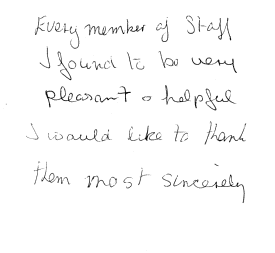 Every member of Staff
I found to be very
pleasant & helpful
I would like to thank
them most sincerely